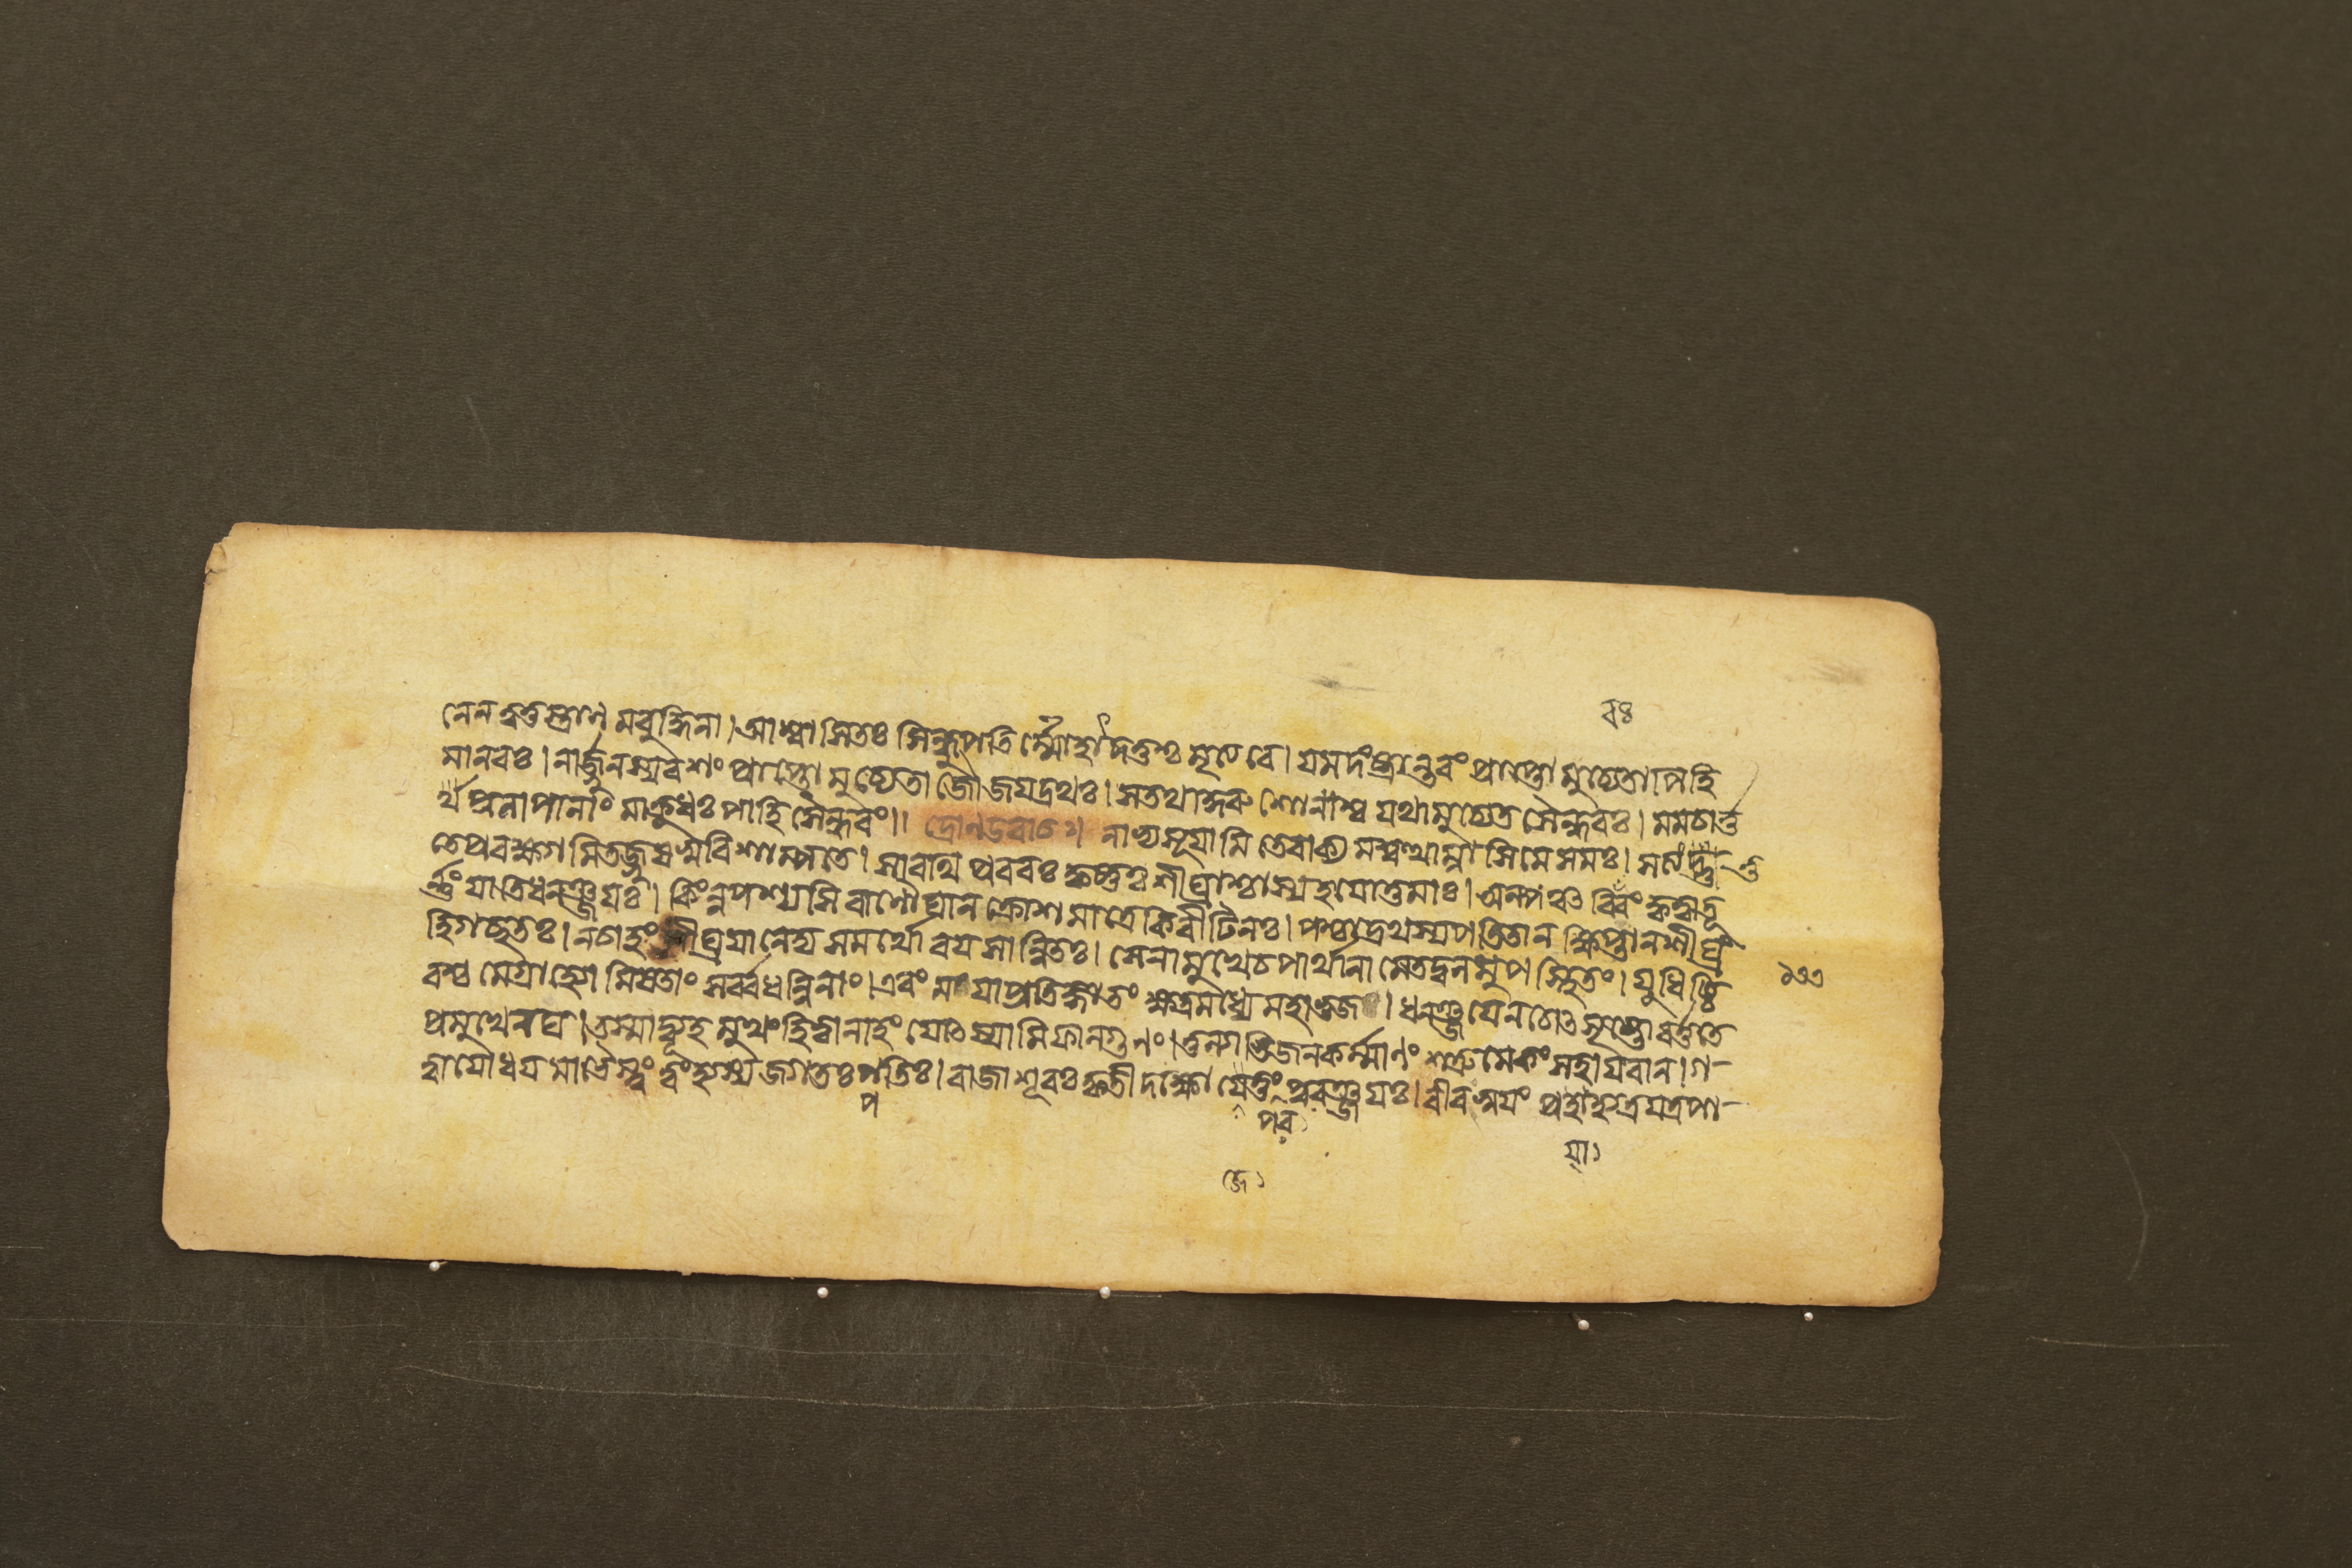 রঃ
নেনত্বত্তস্ত্রাণমবুদ্ধিনা।আশ্বাসিতঃ সিন্ধুপতির্ম্মোহাদ্দত্তশ্চ মৃত্যবে। যমদংষ্ট্রান্তরং প্রাপ্তো মুচ্যেতাপিহি
মানবঃ। নার্জ্জুনস্যবশং প্রাপ্তো মুচ্যেতাজৌ জয়দ্রথঃ। সতথাকুরু শোনাশ্ব যথামুচ্যেত সৈন্ধবঃ। মমচার্ত্ত
প্রলাপানাং মাক্রুধঃ পাহি সৈন্ধবং।। দ্রোনউবাচ। নাভ্যসূযামি তেবাক্য মশ্বত্থাম্নাসিমে সমঃ। সত্যন্তু
তেপ্রবক্ষ্যামিতজ্জুষস্ববিশাম্পতে। সারথিঃ প্রবরঃ কৃষ্ণশ্চ শীঘ্রাশ্চাস্যহযোত্তমাঃ। অল্পঞ্চ বিবরং কৃত্বাতূ
র্ণ্ণং যাতিধনঞ্জযঃ। কিংনুপশ্যসি বাণৌঘান ক্রোশমাত্রেকিরীটিনঃ। পশ্চাদ্রথস্যপতিতান ক্ষিপ্তানশীঘ্রং
হিগচ্ছতঃ। নচাহং শীঘ্রযানেদ্য সমর্থো বযসান্বিতঃ। সেনামুখেচপার্থানা মেতদ্বলমুপস্থিতং। যুধিষ্ঠি
রশ্চ মেগ্রাহ্যো মিষতাং সর্ব্বধন্বিনাং। এবং মযাপ্রতিজ্ঞাতং ক্ষত্রমধ্যে মহাভুজ। ধনঞ্জযেনচোৎসৃষ্টো বর্ত্ততে
প্রমুখেমম। তস্মাদ্ব্যূহমুখংহিত্বানাহং যোৎস্যামিফাল্গুনং। তুল্যাভিজনকর্ম্মাণং শত্রুমেকং সহাযবান। গ-
ত্বাযোধযমাভৈস্ত্বং ত্বংহ্যস্য জগতঃপতিঃ। রাজা শূরঃ কৃতী দক্ষো জেতুং পরপুরঞ্জযঃ। বীরস্বযং প্রযাহ্যত্রযত্রপা-
প
পুর
যা১
জে১